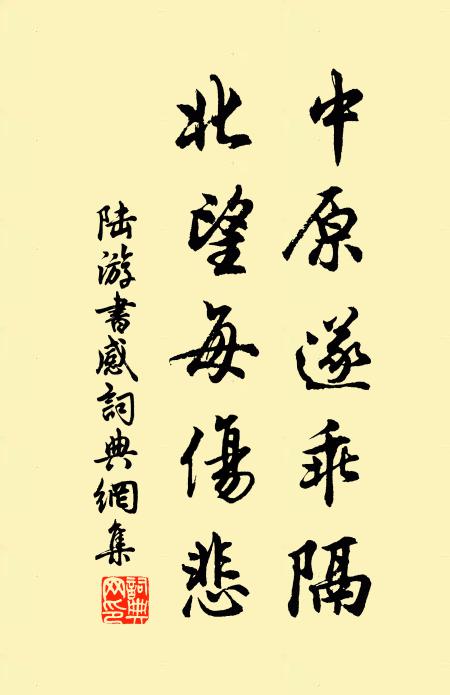 中原遂乖隔
北望每傷悲
陆游書感詞典網集
詞典
网印